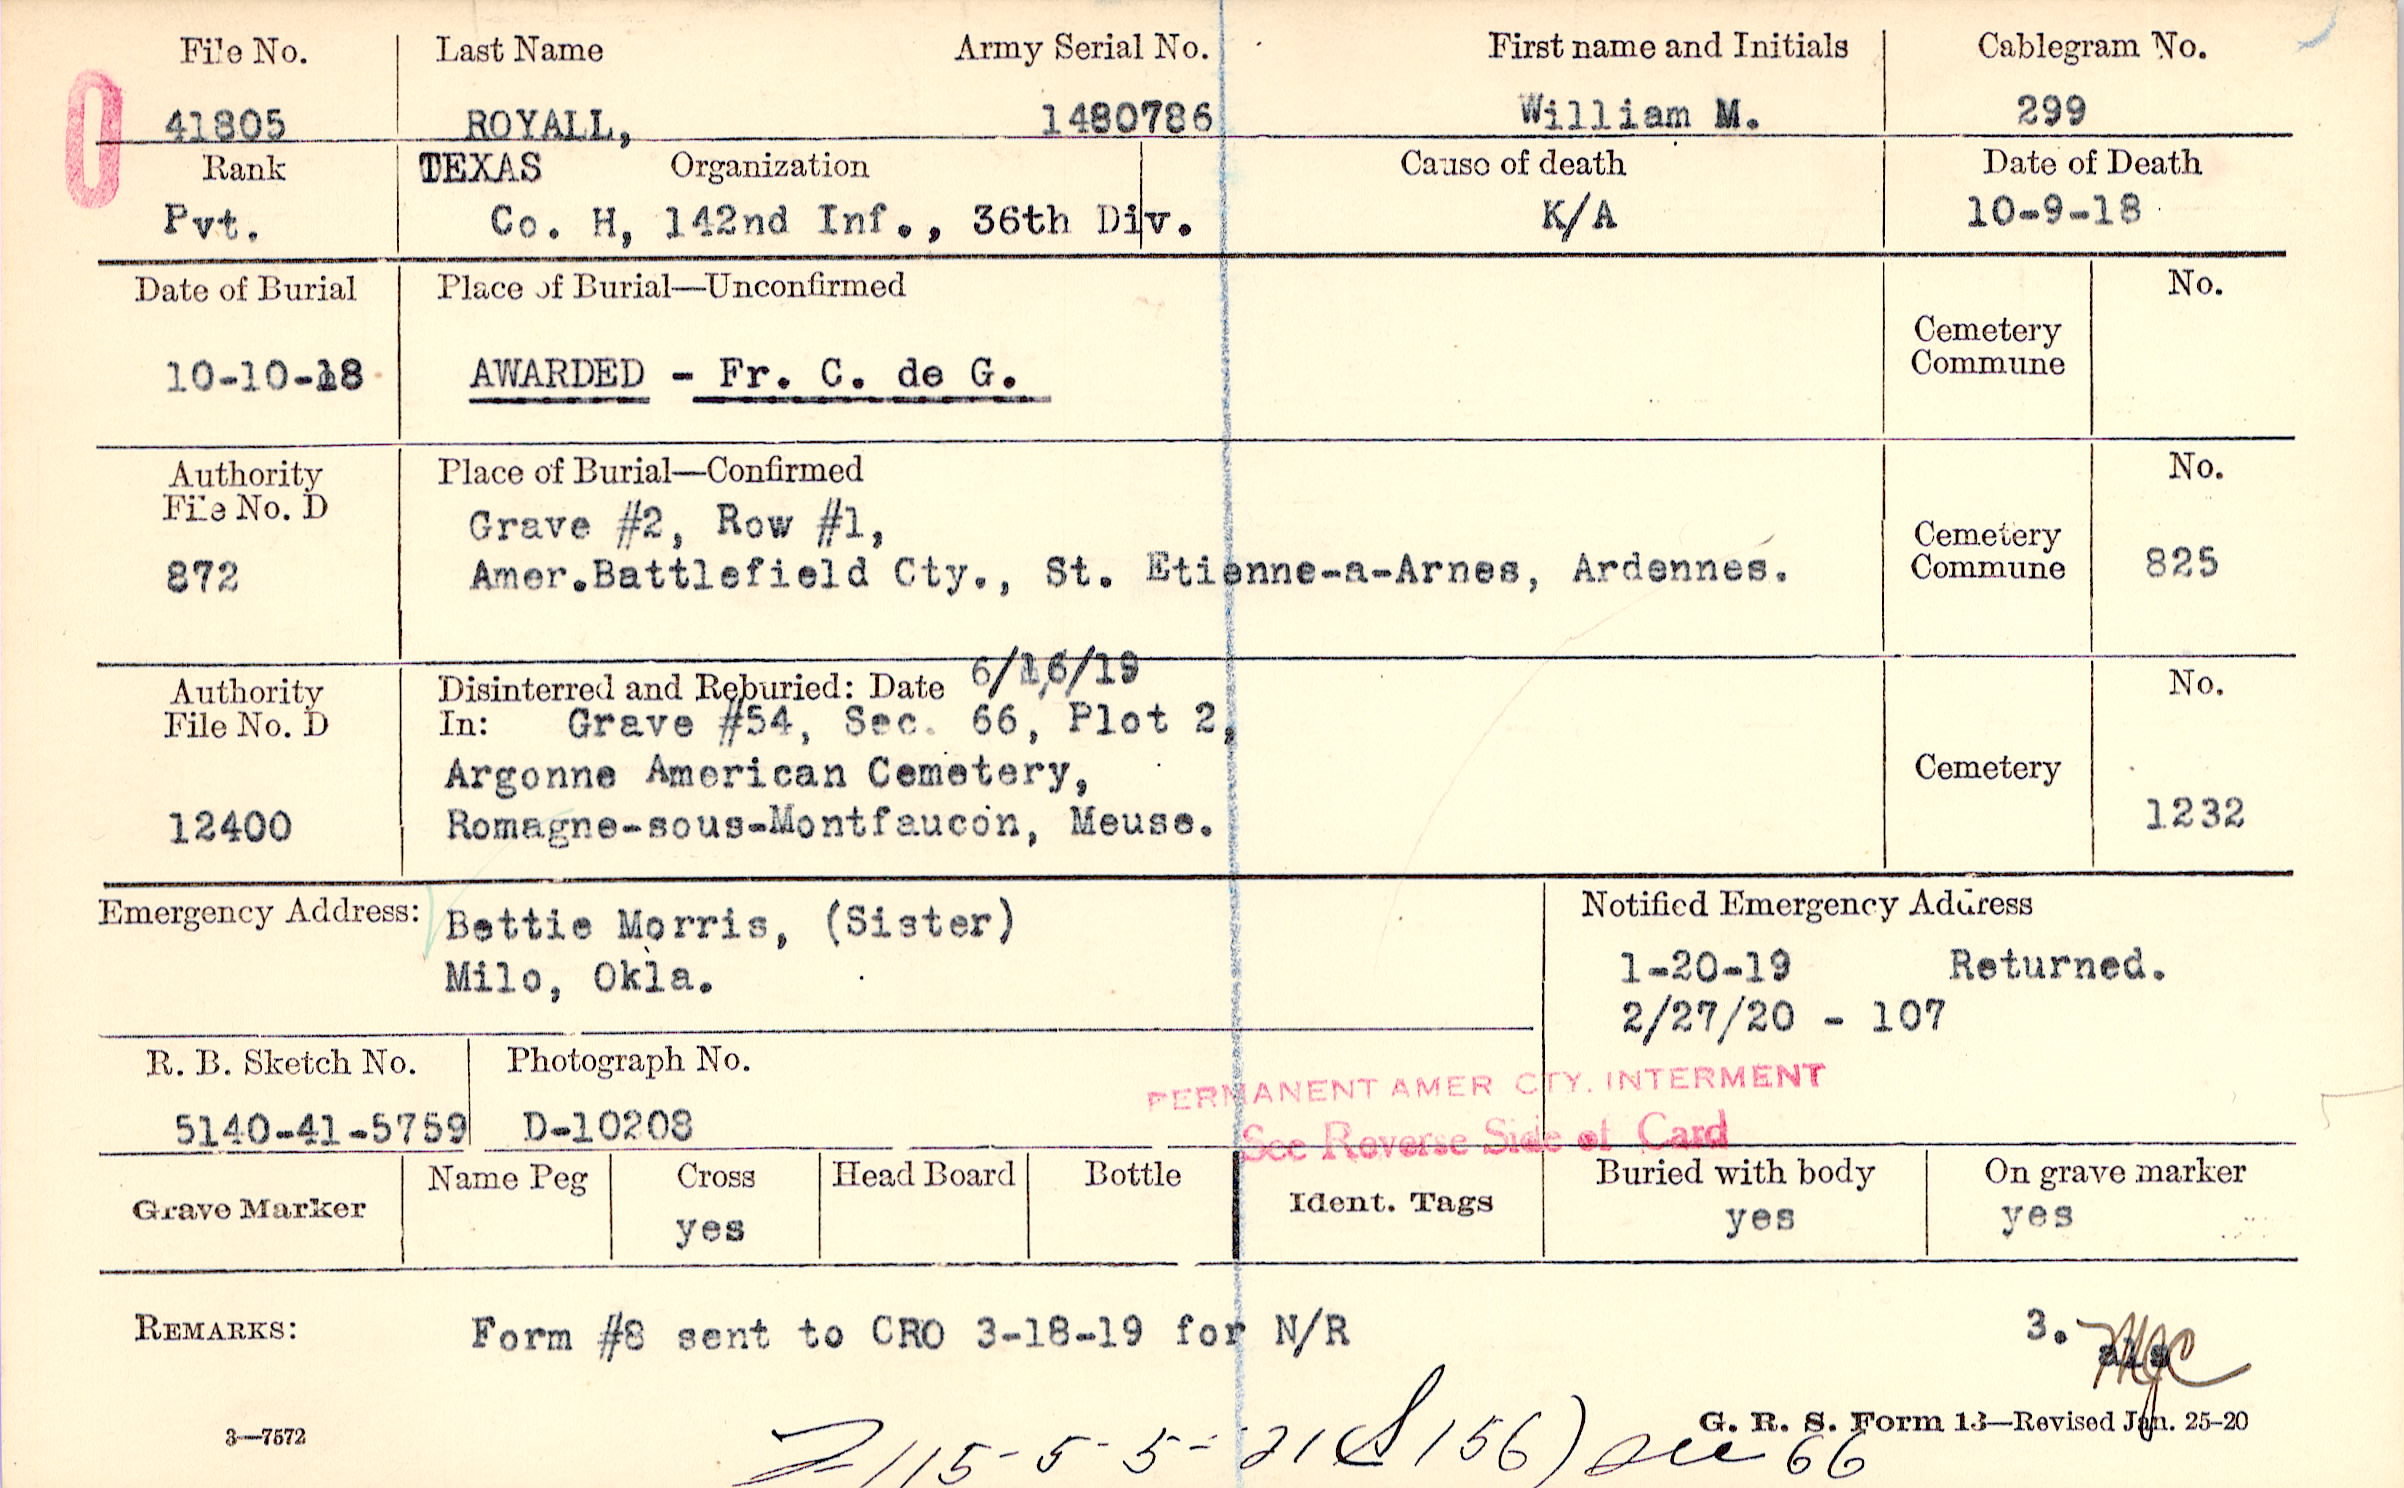 File No. Last Name Army Serial No. First name and Initials Cablegram No.
41805 ROYALL, 1480786 William M. 299
Rank TEXAS Organization Cause of death Date of Death
Pvt. Co. H, 142nd Inf., 36th Div. K/A 10-9-18
Date of Burial Place of Burial—Unconfirmed No.
Cemetery
Commune
10-10-18 AWARDED - Fr. C. de G.
Authority Place of Burial—Confirmed No.
File No. D
Grave #2, Row #1,
Cemetery
872 Amer.Battlefield Cty., St. Etienne-a-Arnes, Ardennes. Commune 825
Authority Disinterred and Reburied: Date 6/16/19 No.
File No. D In: Grave #54, Sec. 66, Plot 2,
Argonne American Cemetery, Cemetery
12400 Romagne-sous-Montfaucon, Meuse. 1232
Emergency Address: Bettie Morris, (Sister) Notified Emergency Address
Milo, Okla. 1-20-19 Returned.
2/27/20 - 107
R. B. Sketch No. Photograph No.
PERMANENT AMER CTY. INTERMENT
5140-41-5759 D-10208 See Reverse Side of Card
Grave Marker Name Peg Cross Head Board Bottle Ident. Tags Buried with body On grave marker
yes yes yes
REMARKS: Form #8 sent to CRO 3-18-19 for N/R 3.
3—7572 G. R. S. Form 13—Revised Jan. 25-20
115-5-5-21 (S156) 66